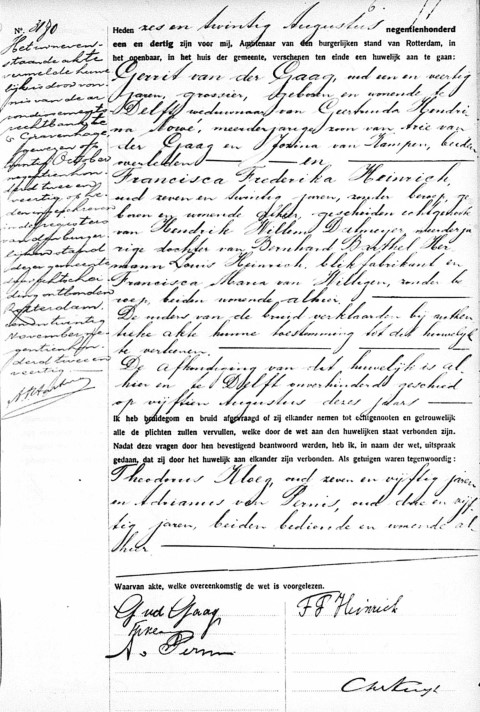 No. 3190
Het nevenstaande
akte
vermelde huwe
lijk is door von
nis van de ar
rondissements
rechtbank te
's Gravenhage,
October
negentienhon
derd twee en
veertig
in de registers
van den burger
lijken stand
dezer gemeente
door echtschei
ding ontbonden
Rotterdam
den
November ne
gentienhon
derd twee en
veertig
Heden zes en twintig Augustus negentienhonderd
een en dertig zijn voor mij, Ambtenaar van den burgerlijken stand van Rotterdam, in
het openbaar, in het huis der gemeente, verschenen ten einde een huwelijk aan te gaan:
Gerrit van der Gaag, oud een en veertig
jaren, grossier, geboren en wonende te
Delft, weduwnaar van Geertruida Hendri
na Nowé, meerderjarige zoon van Arie van
der Gaag en Jozina van Kampen, beiden
overleden en
Francisca Frederika Heinrich,
oud zeven en twintig jaren, zonder beroep, ge
boren en wonende alhier, gescheiden echtgenoote
van Hendrik Willem Dalmeijer, meerderja
rige dochter van Bernhard Barthel Her
mann Louis Heinrich, blikfabrikant en
Francisca Maria van Willigen, zonder be
roep, beiden wonende alhier.
De ouders van de bruid verklaarden bij authen
tieke akte hunne toestemming tot dit huwelijk
te verleenen.
De afkondiging van dit huwelijk is al
hier en te Delft onverhinderd geschied
op vijftien Augustus dezes jaars
Ik heb bruidegom en bruid afgevraagd of zij elkander nemen tot echtgenooten en getrouwelijk
alle de plichten zullen vervullen, welke door de wet aan den huwelijken staat verbonden zijn.
Nadat deze vragen door hen bevestigend beantwoord werden, heb ik, in naam der wet, uitspraak
gedaan, dat zij door het huwelijk aan elkander zijn verbonden. Als getuigen waren tegenwoordig:
Theodorus Kloeg, oud zeven en vijftig jaren
en Adrianus van Pernis, oud drie en vijf
tig jaren, beiden bediende en wonende al
hier
Waarvan akte, welke overeenkomstig de wet is voorgelezen.
G vd Gaag
F F Heinrich
A. v Pernis